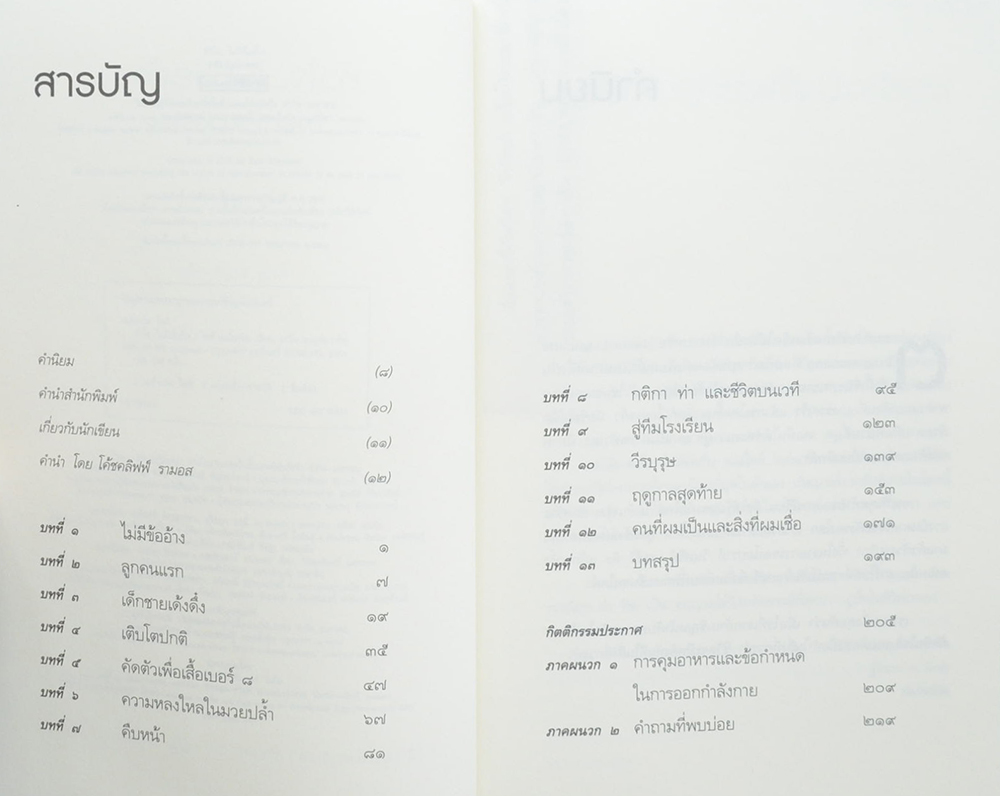 สารบัญ
คำนิยม (๘)
คำนำสำนักพิมพ์ (๑๐)
เกี่ยวกับนักเขียน (๑๑)
คำนำ โดย โค้ชคลิฟฟ์ รามอส (๑๒)
บทที่ ๑ ไม่มีข้ออ้าง ๑
บทที่ ๒ ลูกคนแรก ๗
บทที่ ๓ เด็กชายเด้งดึ๋ง ๑๙
บทที่ ๔ เติบโตปกติ ๓๕
บทที่ ๕ คัดตัวเพื่อเสื้อเบอร์ ๘ ๔๗
บทที่ ๖ ความหลงใหลในมวยปล้ำ ๖๗
บทที่ ๗ คืบหน้า ๘๑
บทที่ ๘ กติกา ท่า และชีวิตบนเวที ๙๕
บทที่ ๙ สู่ทีมโรงเรียน ๑๒๓
บทที่ ๑๐ วีรบุรุษ ๑๓๙
บทที่ ๑๑ ฤดูกาลสุดท้าย ๑๕๓
บทที่ ๑๒ คนที่ผมเป็นและสิ่งที่ผมเชื่อ ๑๗๑
บทที่ ๑๓ บทสรุป ๑๙๓
กิตติกรรมประกาศ ๒๐๕
ภาคผนวก ๑ การคุมอาหารและข้อกำหนด
ในการออกกำลังกาย ๒๐๙
ภาคผนวก ๒ คำถามที่พบบ่อย ๒๑๙